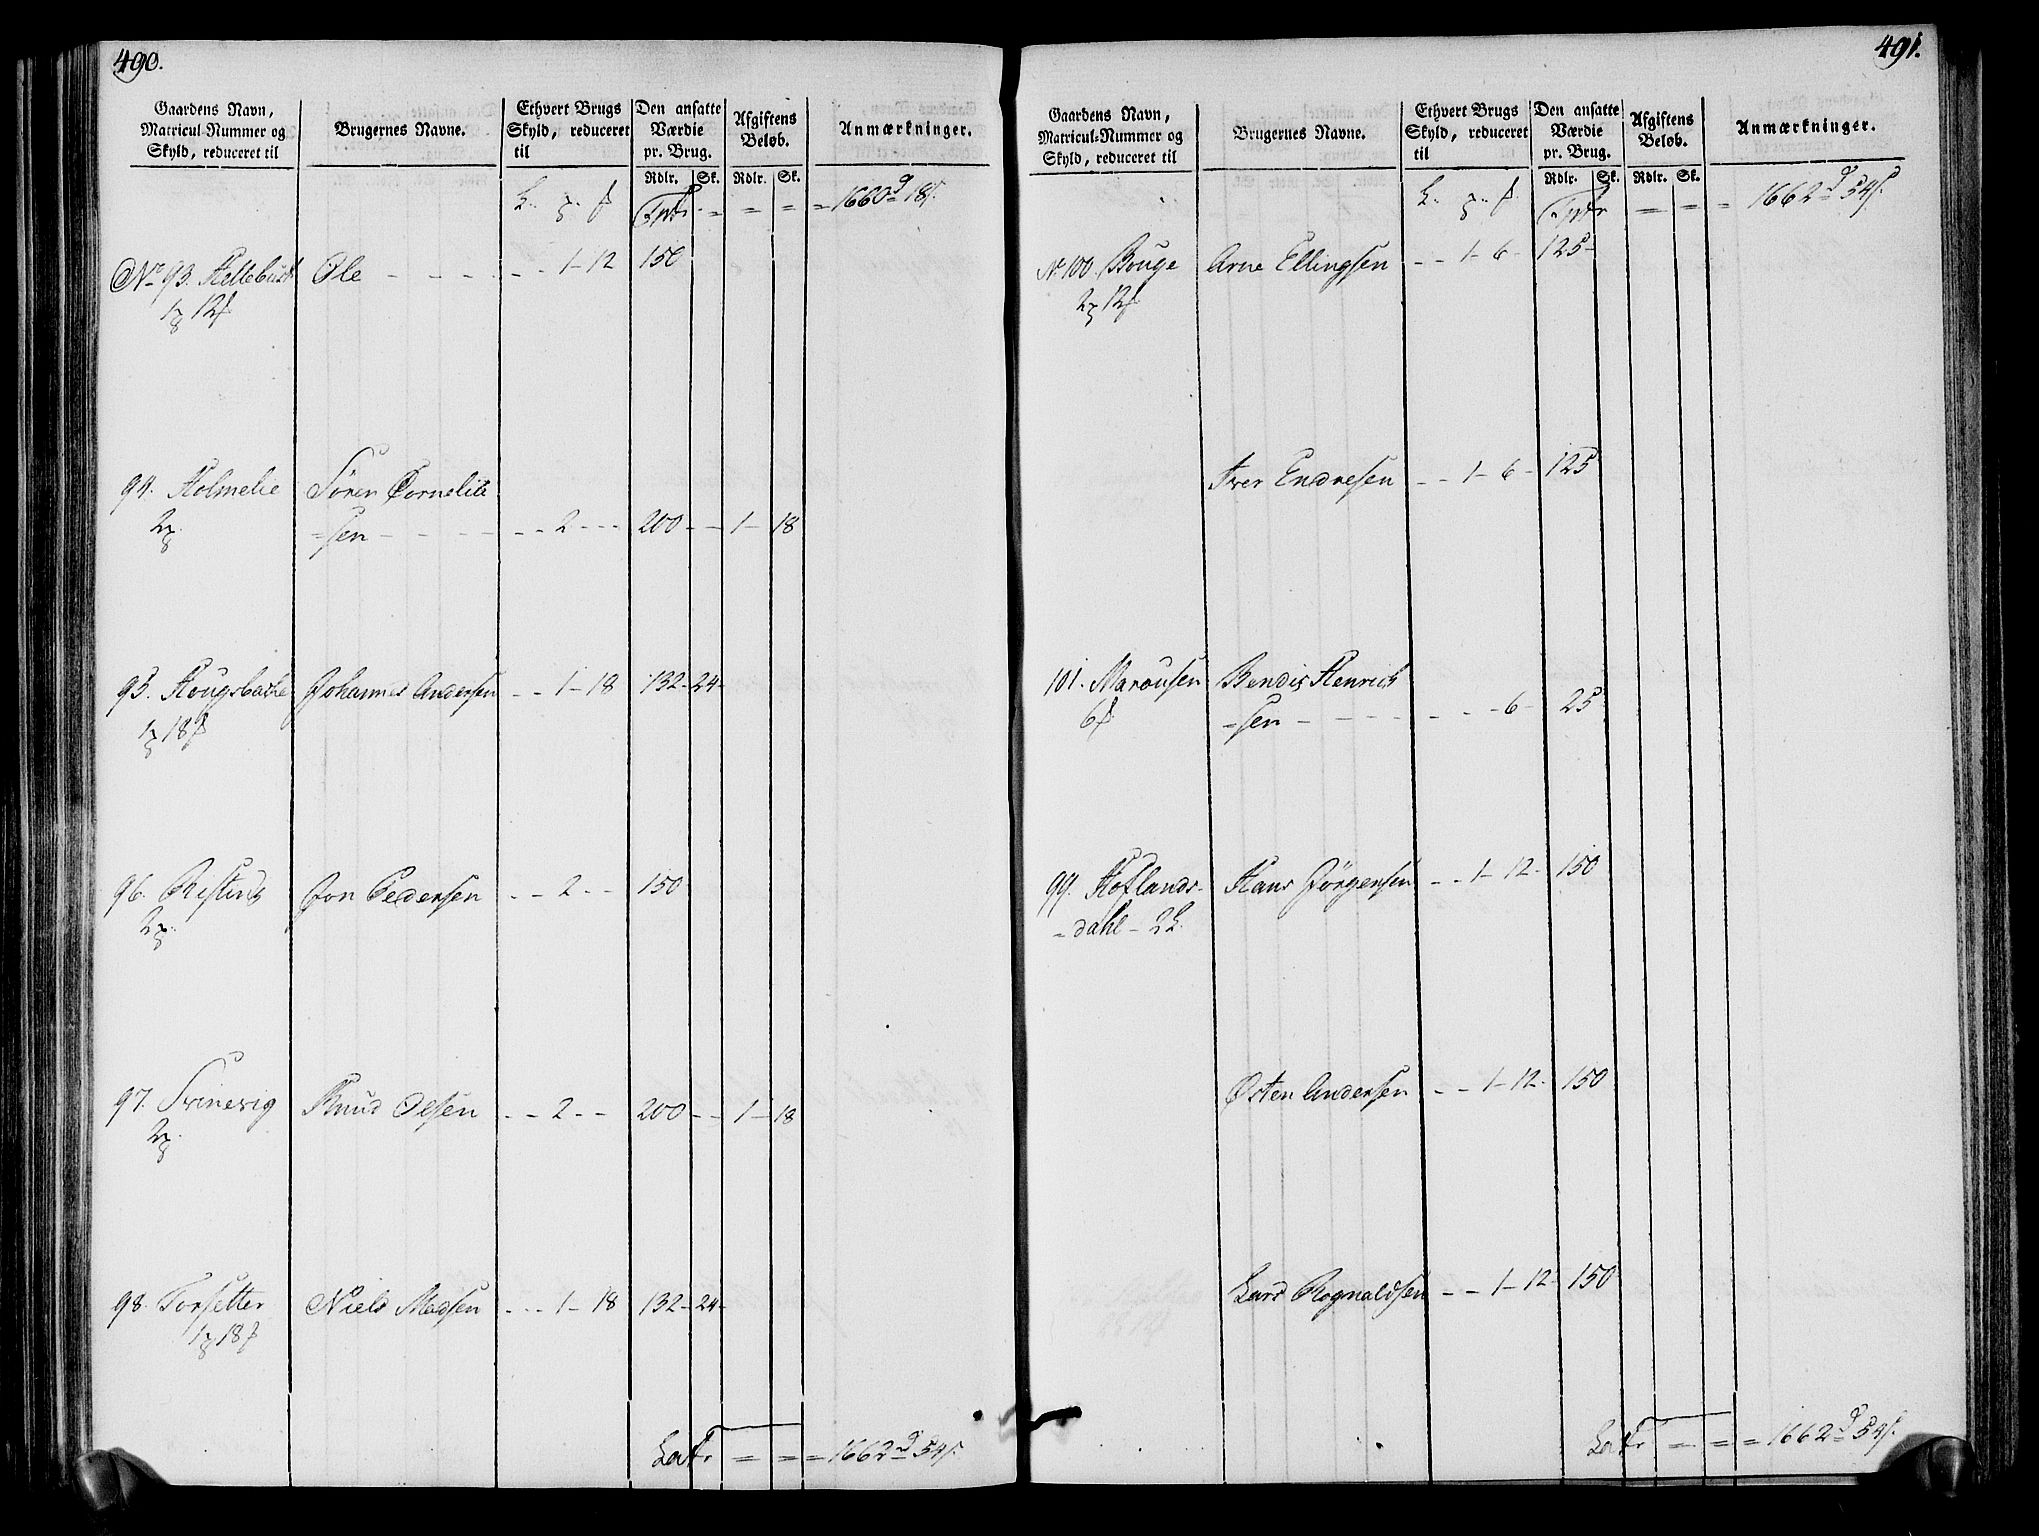 490.
Gaardens Navn, Matricul-Nummer og Skyld, reduceret til
Brugernes Navne.
Ethvert Brugs Skyld, reduceret til
Den ansatte Værdie pr. Brug.
Afgiftens Beløb.
Anmærkninger.
Rdlr. Sk. Rdlr. Sk.
1660 18
No 93. Hellebust Ole - - - - 1-12 150
12
94. Holmelie Søren Cornelie
2 =sen - - - - 2 - - 200 - - 1- 18
95. Hougsbache Johannes Andersen - - 1-18 132-24-
1 18
96. Ristesb Jon Pedersen - - 2 - - 150
2
97. Svinevig Knud Olsen - - 2 - - 200 - - 1-18
2
98. Torsetter Niels Madsen - - 1-18 132-24-
1 18
Latr = = = 1662 54
491.
Gaardens Navn, Matricul-Nummer og Skyld, reduceret til
Brugernes Navne.
Ethvert Brugs Skyld, reduceret til
Den ansatte Værdie pr. Brug.
Afgiftens Beløb.
Anmærkninger.
Rdlr. Sk. Rdlr. Sk.
1662 54
No 100. Bouge Arne Ellingsen - - 1-6- 125-
2 12
Iver Endresen - - 1-6- 125
101. Marousen Bendix Henrich
6 =sen - - - - 6- 25
99. Hoflands- Hans Jørgensen - - 1-12- 150
=dahl - 2
Østen Andersen - - 1-12- 150
Lars Rognaldsen - - 1-12 150
Latr = = = 1662 54